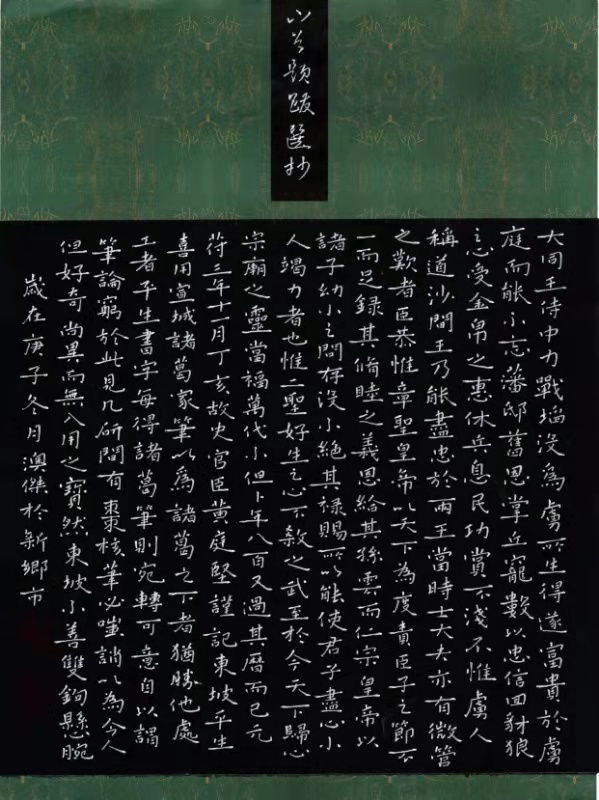 山谷題跋選抄
大同王侍中力戰塪沒為虜所生得遂富貴於虜
庭而能不忘藩邸舊恩掌丘寵數以忠信回豺狼
之受金帛之惠休兵息民功賞不淺不惟虜人
稱道沙間王乃能盡忠於兩王當時士大夫亦有微管
之歎者臣恭惟章聖皇帝以天下為度責臣子之節不
一而足錄其脩睦之義恩給其孫雲而仁宗皇帝以
諸子幼小之問存沒不絕其祿賜所以能使君子盡心小
人竭力者也惟二聖好生之心不殺之武至於今天下歸心
宗廟之靈當福萬代不但卜年八百又過其曆而已元
符三年十一月丁亥故史官臣黃庭堅謹記東坡平生
喜用宣城諸葛家筆以為諸葛之下者猶勝他處
工者平生書字每得諸葛筆則宛轉可意自以謂
筆論窮於此見几研間有棗核筆必嗤誚以為今人
但好奇尚異而無入用之寶然東坡不善雙鉤懸腕
歲在庚子冬月澳傑於新鄉市